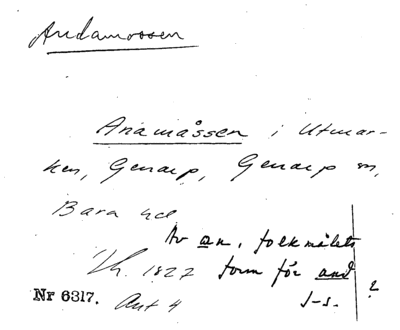 Andamossen
Anamåssen i Utmar-
ken, Genarp, Genarp sn,
Bara hd
Av an, folkmålets
Uh. 1827 form för and ?
Nr 6317. Ant 4 J-s.